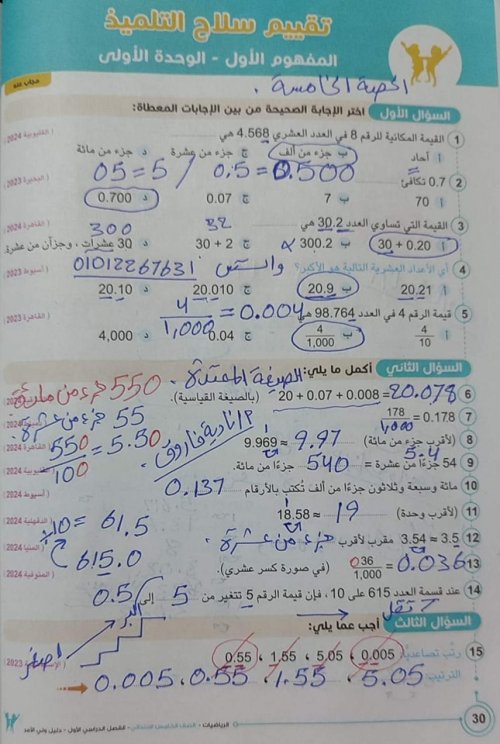 تقييم سلاح التلميذ
المفهوم الأول - الوحدة الأولى
مجاب عنه
الحصة الخامسة .
السؤال الأول اختر الإجابة الصحيحة من بين الإجابات المعطاة:
1 القيمة المكانية للرقم 8 في العدد العشري 4.568 هي (القليوبية 2024)
أ آحاد ب جزء من ألف ج جزء من عشرة د جزء من مائة
05 = 5 / 0.5 = 0.500
2 0.7 تكافئ: (البحيرة 2023)
أ 70 ب 7 ج 0.07 د 0.700
3 القيمة التي تساوي العدد 30.2 هي (القاهرة 2024)
32 300
أ 30 + 0.20 ب 300.2 ج 30 + 2 د 30 عشرات، وجزآن من عشرة
4 أي الأعداد العشرية التالية هو الأكبر؟ واتس 01012267631 (أسيوط 2023)
أ 20.21 ب 20.9 ج 20.010 د 20.10
5 قيمة الرقم 4 في العدد 98.764 هي 4/1,000 = 0.004 (القاهرة 2023)
أ 4/10 ب 4/1,000 ج 0.04 د 4,000
السؤال الثاني أكمل ما يلي: الصيغة الممتدة .
550 جزء من مائة
6 20 + 0.07 + 0.008 = 20.078 (بالصيغة القياسية).
55 جزء من عشرة
7 0.178 = 178/1,000
550/100 = 5.50
أ/ نادية فاروق
8 9.969 ≈ 9.97 (لأقرب جزء من مائة) (القاهرة 2024)
5.4
9 54 جزءًا من عشرة = 540 جزءًا من مائة. (القليوبية 2024)
10 مائة وسبعة وثلاثون جزءًا من ألف تُكتب بالأرقام 0.137 (أسيوط 2024)
11 18.58 ≈ 19 (لأقرب وحدة) (الدقهلية 2024)
÷10 = 61.5
12 3.54 ≈ 3.5 مقرب لأقرب جزء من عشرة . (المنيا 2024)
615.0
13 036/1,000 = 0.036 (في صورة كسر عشري). (المنوفية 2024)
14 عند قسمة العدد 615 على 10 ، فإن قيمة الرقم 5 تتغير من 5 إلى 0.5
تقل
السؤال الثالث أجب عما يلي:
أكبر
أصغر
15 رتّب تصاعديًا: 0.005 ، 5.05 ، 1.55 ، 0.55
الترتيب 0.005 ، 0.55 ، 1.55 ، 5.05
30 الرياضيات - الصف الخامس الابتدائي - الفصل الدراسي الأول - دليل ولي الأمر